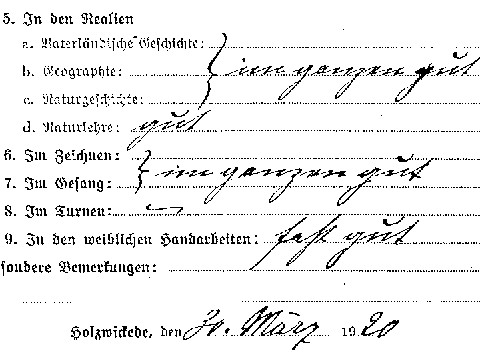 5. In den Realien
a. Vaterländische Geschichte:
b. Geographie: im ganzen gut
c. Naturgeschichte:
d. Naturlehre: gut
6. Im Zeichnen:
im ganzen gut
7. Im Gesang:
8. Im Turnen: —
9. In den weiblichen Handarbeiten: fast gut
sondere Bemerkungen:
Holzwickede, den 30. März 1920